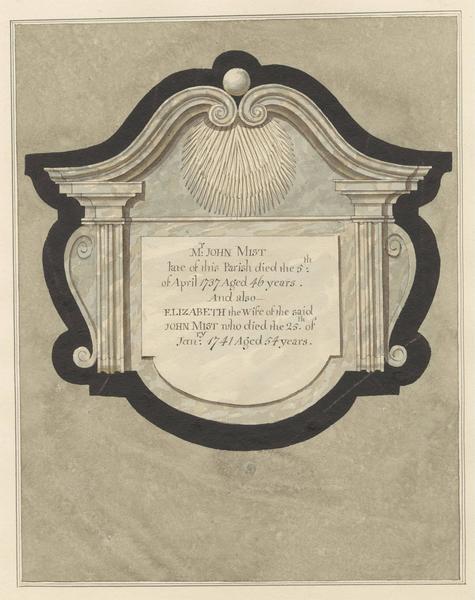 Mr. JOHN MIST
late of this Parish died the 5th.
of April 1737 Aged 46 years.
And also
ELIZABETH the Wife of the said
JOHN MIST who died the 25th. of
Janry. 1741 Aged 54 years.